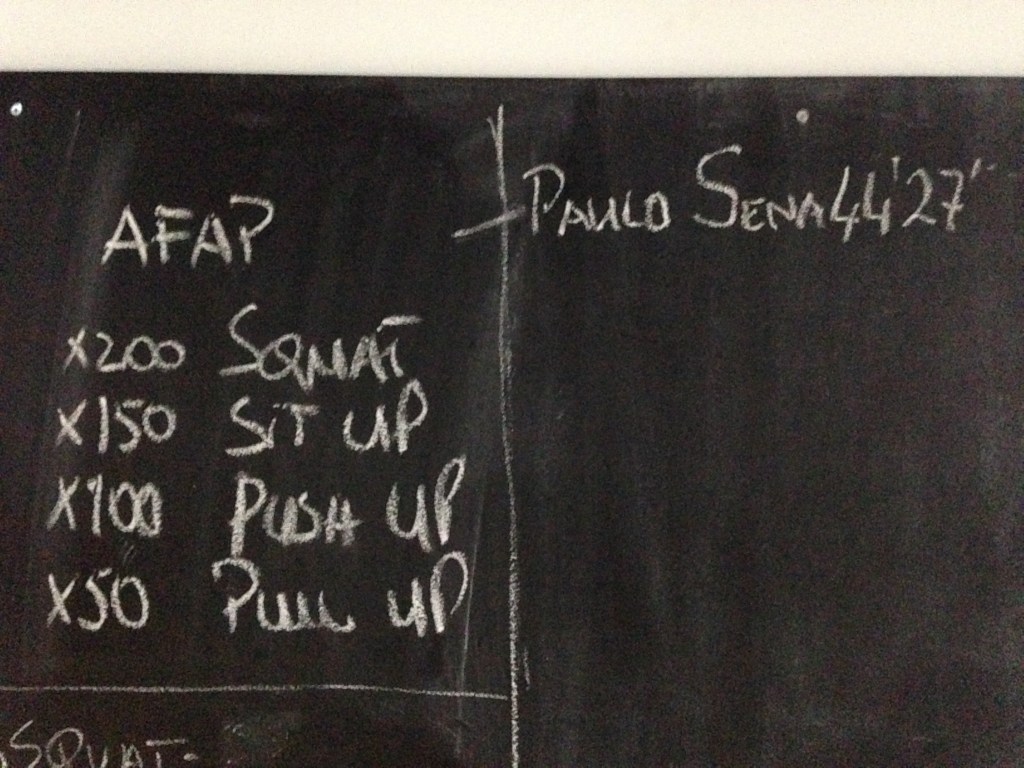 AFAP
x200 SQUAT
x150 SIT UP
x100 PUSH UP
x50 PULL UP
SQUAT-
PAULO SENA 44'27''